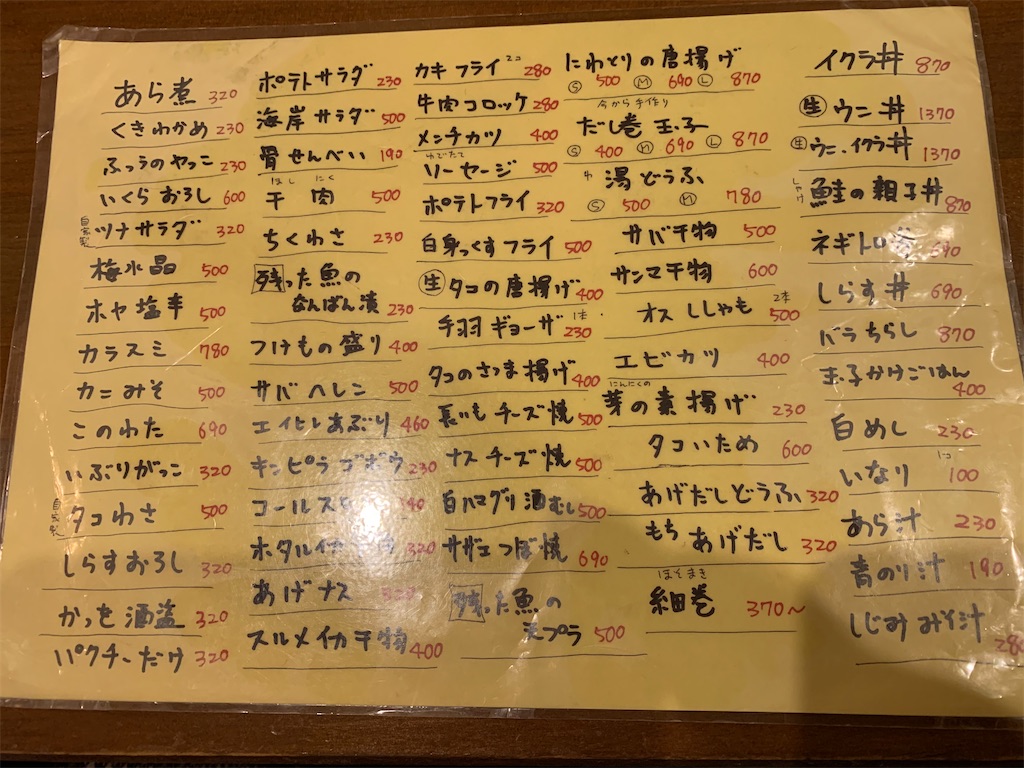 あら煮 320
くきわかめ 230
ふつうのやっこ 230
いくらおろし 600
自家製 ツナサラダ 320
梅水晶 500
ホヤ塩辛 500
カラスミ 780
カニみそ 500
このわた 690
いぶりがっこ 320
自家製 タコわさ 500
しらすおろし 320
かつを酒盗 320
パクチーだけ 320
ポテトサラダ 230
海岸サラダ 500
骨せんべい 190
ほし にく
干肉 500
ちくわさ 230
残った魚の
なんばん漬 230
つけもの盛り 400
サバヘレン 500
エイヒレあぶり 460
キンピラゴボウ 230
コールス
ホタルイカ 320
あげナス
スルメイカ干物 400
カキフライ 2コ 280
牛肉コロッケ 280
メンチカツ 400
ゆでたて
ソーセージ 500
ポテトフライ 320
白身っくすフライ 500
生 タコの唐揚げ 400
手羽ギョーザ 1本 230
タコのさつま揚げ 400
長いもチーズ焼 500
ナスチーズ焼 500
白ハマグリ酒むし 500
サザエつぼ焼 690
残った魚の
天プラ 500
にわとりの唐揚げ
S 500 M 690 L 870
今から手作り
だし巻玉子
S 400 M 690 L 870
湯どうふ
S 500 M 780
サバ干物 500
サンマ干物 600
オスししゃも 2本 500
エビカツ 400
にんにくの
芽の素揚げ 230
タコいため 600
あげだしどうふ 320
もちあげだし 320
ほそまき
細巻 370〜
イクラ丼 870
生 ウニ丼 1370
生 ウニ・イクラ丼 1370
しゃけ
鮭の親子丼 870
ネギトロ 690
しらす丼 690
バラちらし 870
玉子かけごはん
400
白めし 230
いなり 1コ 100
あら汁 230
青のり汁 190
しじみみそ汁
280